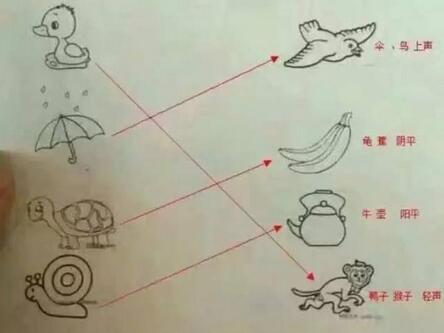 伞、鸟 上声
龟 蕉 阴平
牛 壶 阳平
鸭子 猴子 轻声